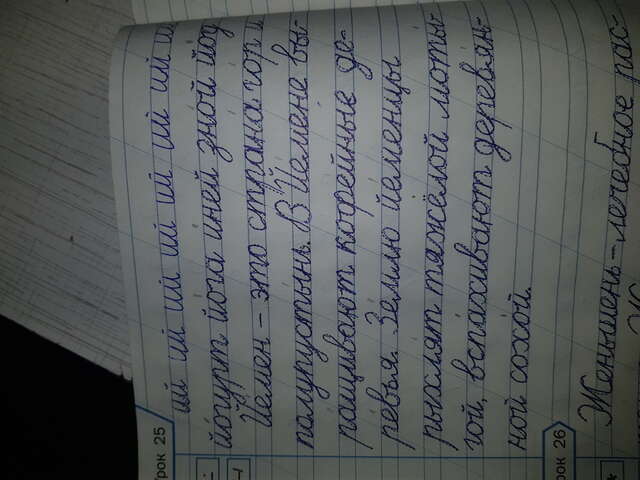 Урок 25
ий ий ий ий ий ий ий и
йогурт йога иней зной йод
Йемен – это страна гор и
полупустынь. В Йемене вы-
ращивают кофейные де-
ревья. Землю йеменцы
рыхлят тяжёлой моты-
гой, вспахивают деревян-
ной сохой.
рок 26
Женьшень – лечебное рас-